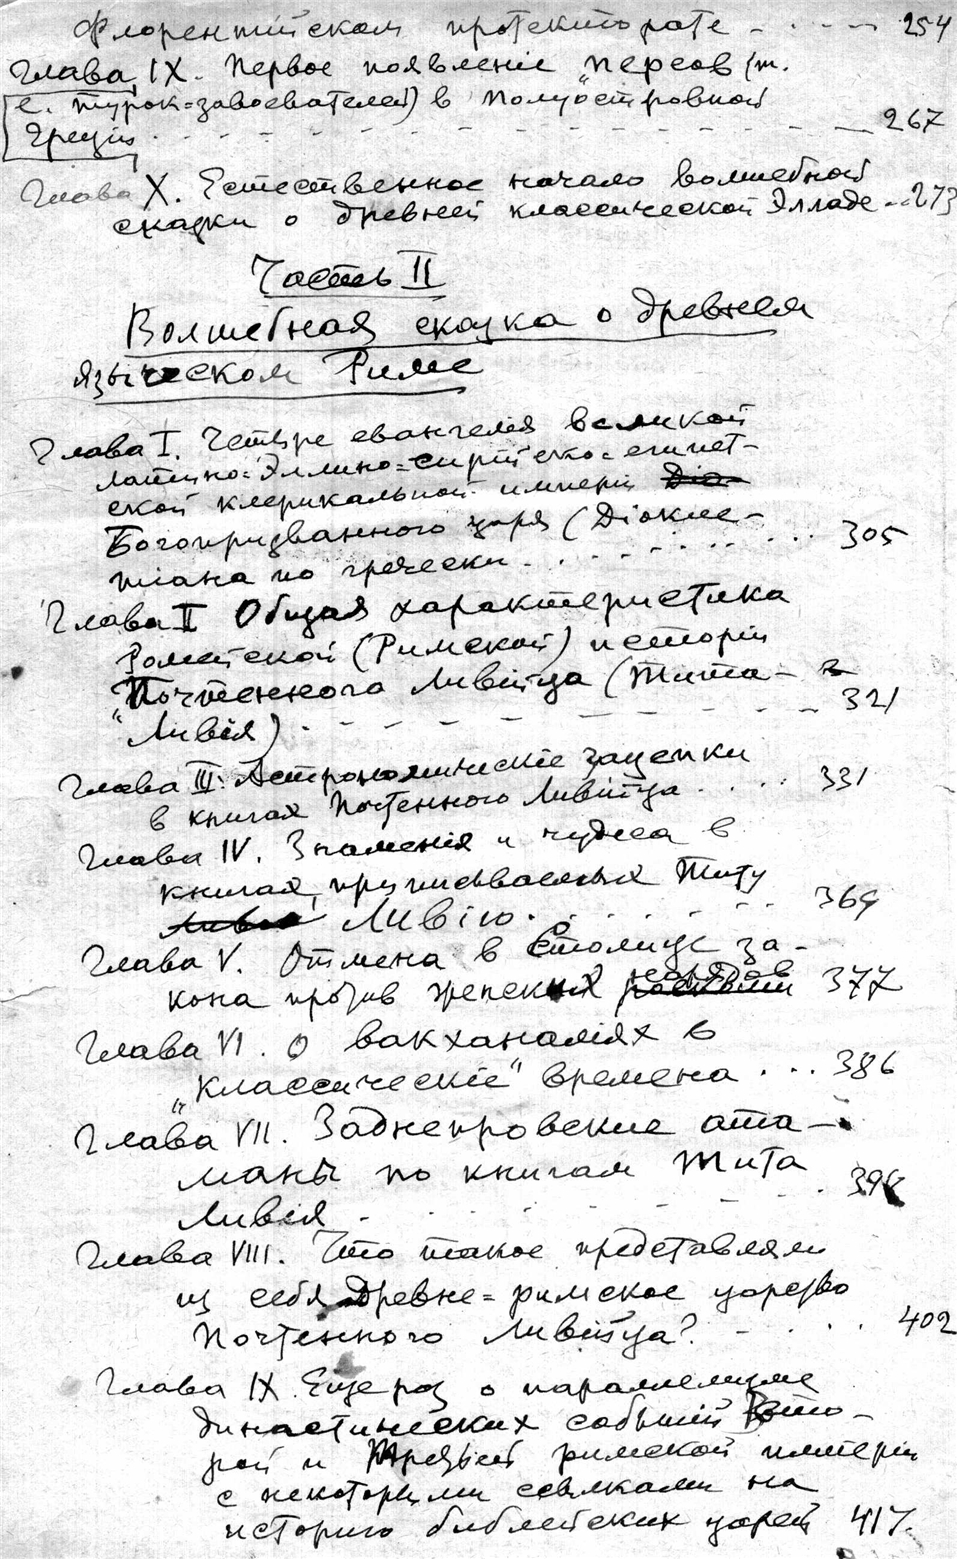 Флорентійском протекторате - . . - - 254
Глава IX. Первое появленіе „персов (т.
е. турок=завоевателей) в полуостровной
Греціи . - . - - - - - - - - - - 267
Глава X. Естественное начало волшебной
сказки о древней классической Элладе - .. 273
Часть II
Волшебная сказка о древнем
языческом Риме
Глава I. Четыре евангелія великой
латино=Эллино=сирійско=египет-
ской клерикальной имперіи Діо
Богопризванного царя (Діокле-
тіана по гречески . . . - . . . . . 305
Глава II Общая характеристика
Ромейской (Римской) исторіи
"Почтенного Ливійца (Тита-
Ливія) . - - - - - - - - 321
Глава III. Астрономическіе зацепки
в книгах Почтенного Ливійца . . . . 331
Глава IV. Знаменія и чудеса в
книгах, приписываемых Титу
Ливію . . . . . . . . 369
Глава V. Отмена в Столице за-
кона против женских нарядов 377
Глава VI. О вакханаліях в
„классическіе" времена . . . 386
Глава VII. Заднепровские ата-
маны по книгам Тита
Ливія - . . . . . - - .
Глава VIII. Что такое представлял
из себя Древне=римское царство
Почтенного Ливійца? - . . . 402
Глава IX. Еще раз о параллелизме
династических событий Вто-
рой и Третьей римской имперіи
с некоторыми ссылками на
историю библейских царей 417.